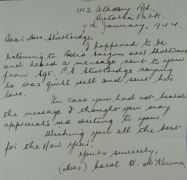 1112 Albany Rd.
Victoria Park.
January, 1944.
Dear Mrs. Strethridge,
I happened to be
listening to Radio
and heard a message sent to you
from Sgt. P. A.
he was quite well and sent his
love.
In case you had not heard
the message I thought you may
appreciate me writing to you.
Wishing you all the best
for the New Year.
Yours sincerely,
(Mrs) H.